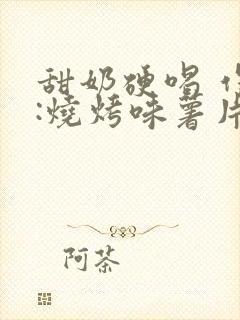 甜奶硬唱
:燒烤味薯片
阿茶